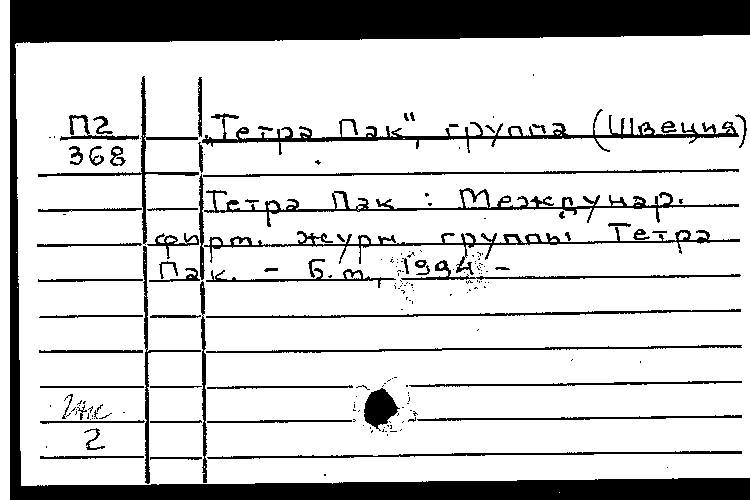 П2
368
„Тетра Пак", группа (Швеция)
Тетра Пак : Междунар.
фирм. журн. группы Тетра
Пак. - Б.м., 1994 -
2